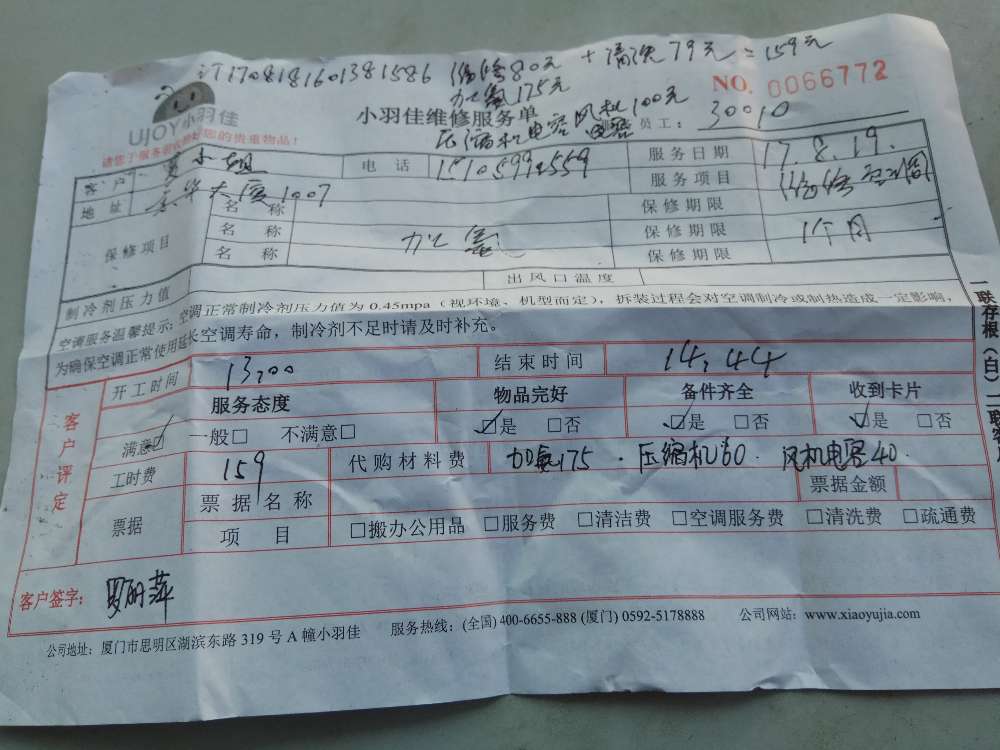 订1708181601381586 维修80元 + 清洗79元 = 159元
加氨175元
NO. 0066772
UJOY小羽佳
小羽佳维修服务单
压缩机电容 风机电容 100元
员工: 30010
请您于服务前收好您的贵重物品!
客户 小姐 电话 服务日期 17.8.19.
地址 大厦1007 服务项目 维修空调
保修项目 名称 保修期限
名称 加氨 保修期限 1个月
名称 保修期限
制冷剂压力值 出风口温度
空调服务温馨提示:空调正常制冷剂压力值为0.45mpa(视环境、机型而定),拆装过程会对空调制冷或制热造成一定影响,
为确保空调正常使用延长空调寿命,制冷剂不足时请及时补充。
客户评定 开工时间 13:00 结束时间 14:44
服务态度 物品完好 备件齐全 收到卡片
满意☑ 一般□ 不满意□ ☑是 □否 ☑是 □否 ☑是 □否
工时费 159 代购材料费 加氨175 · 压缩机60 · 风机电容40 ·
票据 票据名称 票据金额
项目 □搬办公用品 □服务费 □清洁费 □空调服务费 □清洗费 □疏通费
客户签字: 罗丽萍
公司地址: 厦门市思明区湖滨东路319号A幢小羽佳 服务热线: (全国) 400-6655-888 (厦门) 0592-5178888 公司网站: www.xiaoyujia.com
一联存根(白)二联客户